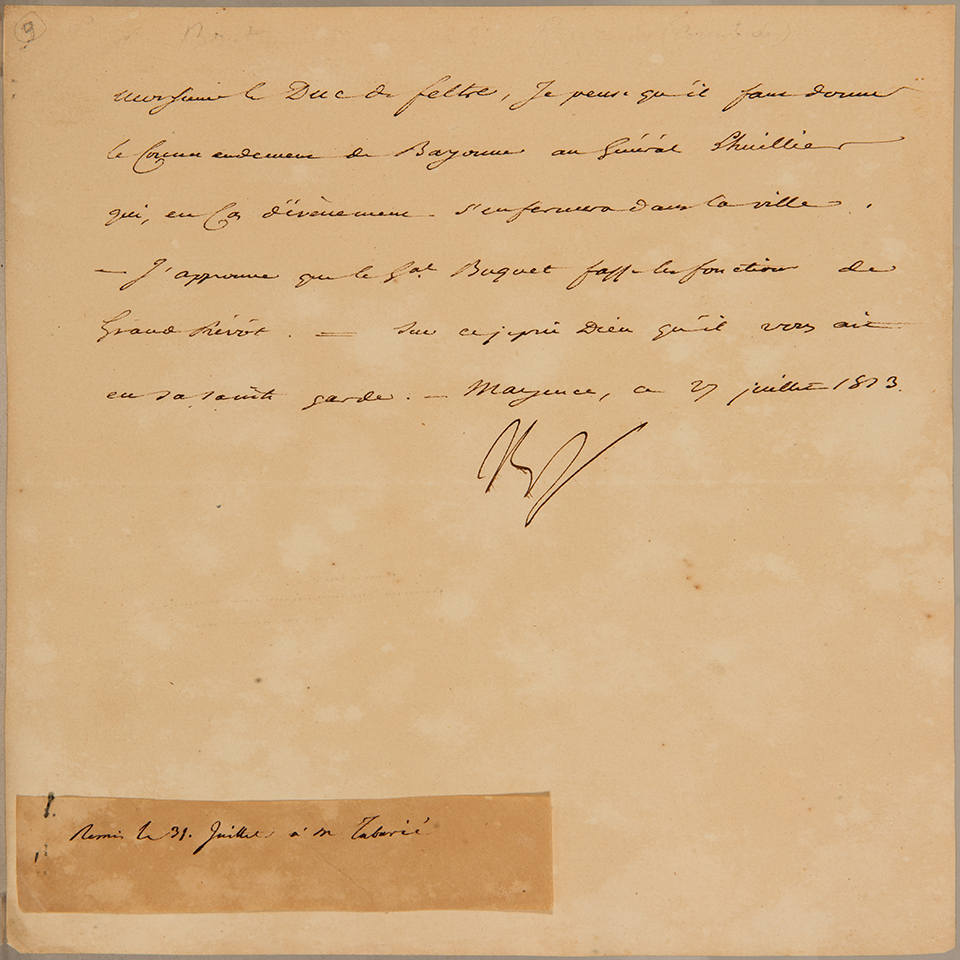 9
Monsieur le Duc de feltre, Je pense qu'il faut donner
le Commandement de Bayonne au Général Lhuillier
qui, en Cas d'évènement s'enfermera dans la ville.
— J'approuve que le Gal Buquet fasse les fonctions de
Grand Prévôt. — Sur ce je prie Dieu qu'il vous ait
en sa sainte garde. — Mayence, ce 27 juillet 1813.
Remis le 31. Juillet à M Tabarié